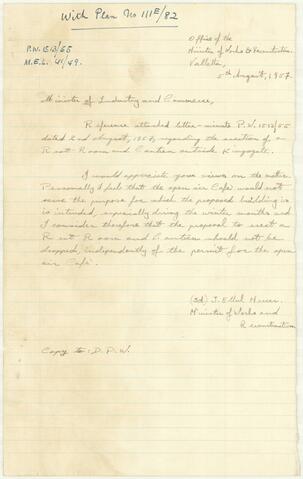 With Plan No 111E/82
Office of the
Minister of Works & Reconstruction,
Valletta,
5th August, 1957.
P.W. 1513/55
M.E.L. 41/49.
Minister of Industry and Commerce,
Reference attached letter-minute P.W. 1513/55
dated 2nd August, 1957, regarding the erection of a
Rest-Room and Canteen outside Kingsgate.
I would appreciate your views on the matter.
Personally I feel that the open air Café would not
serve the purpose for which the proposed building is
intended, especially during the winter months and
I consider therefore that the proposal to erect a
Rest Room and Canteen should not be
dropped, independently of the permit for the open
air Café.
(Sd) J.
Minister of Works and
Reconstruction
Copy to: D.P.W.